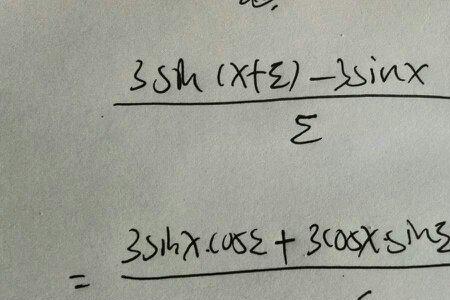 3sin(x+ε)-3sinx
ε
= 3sinx·cosε+3cosx·sinε